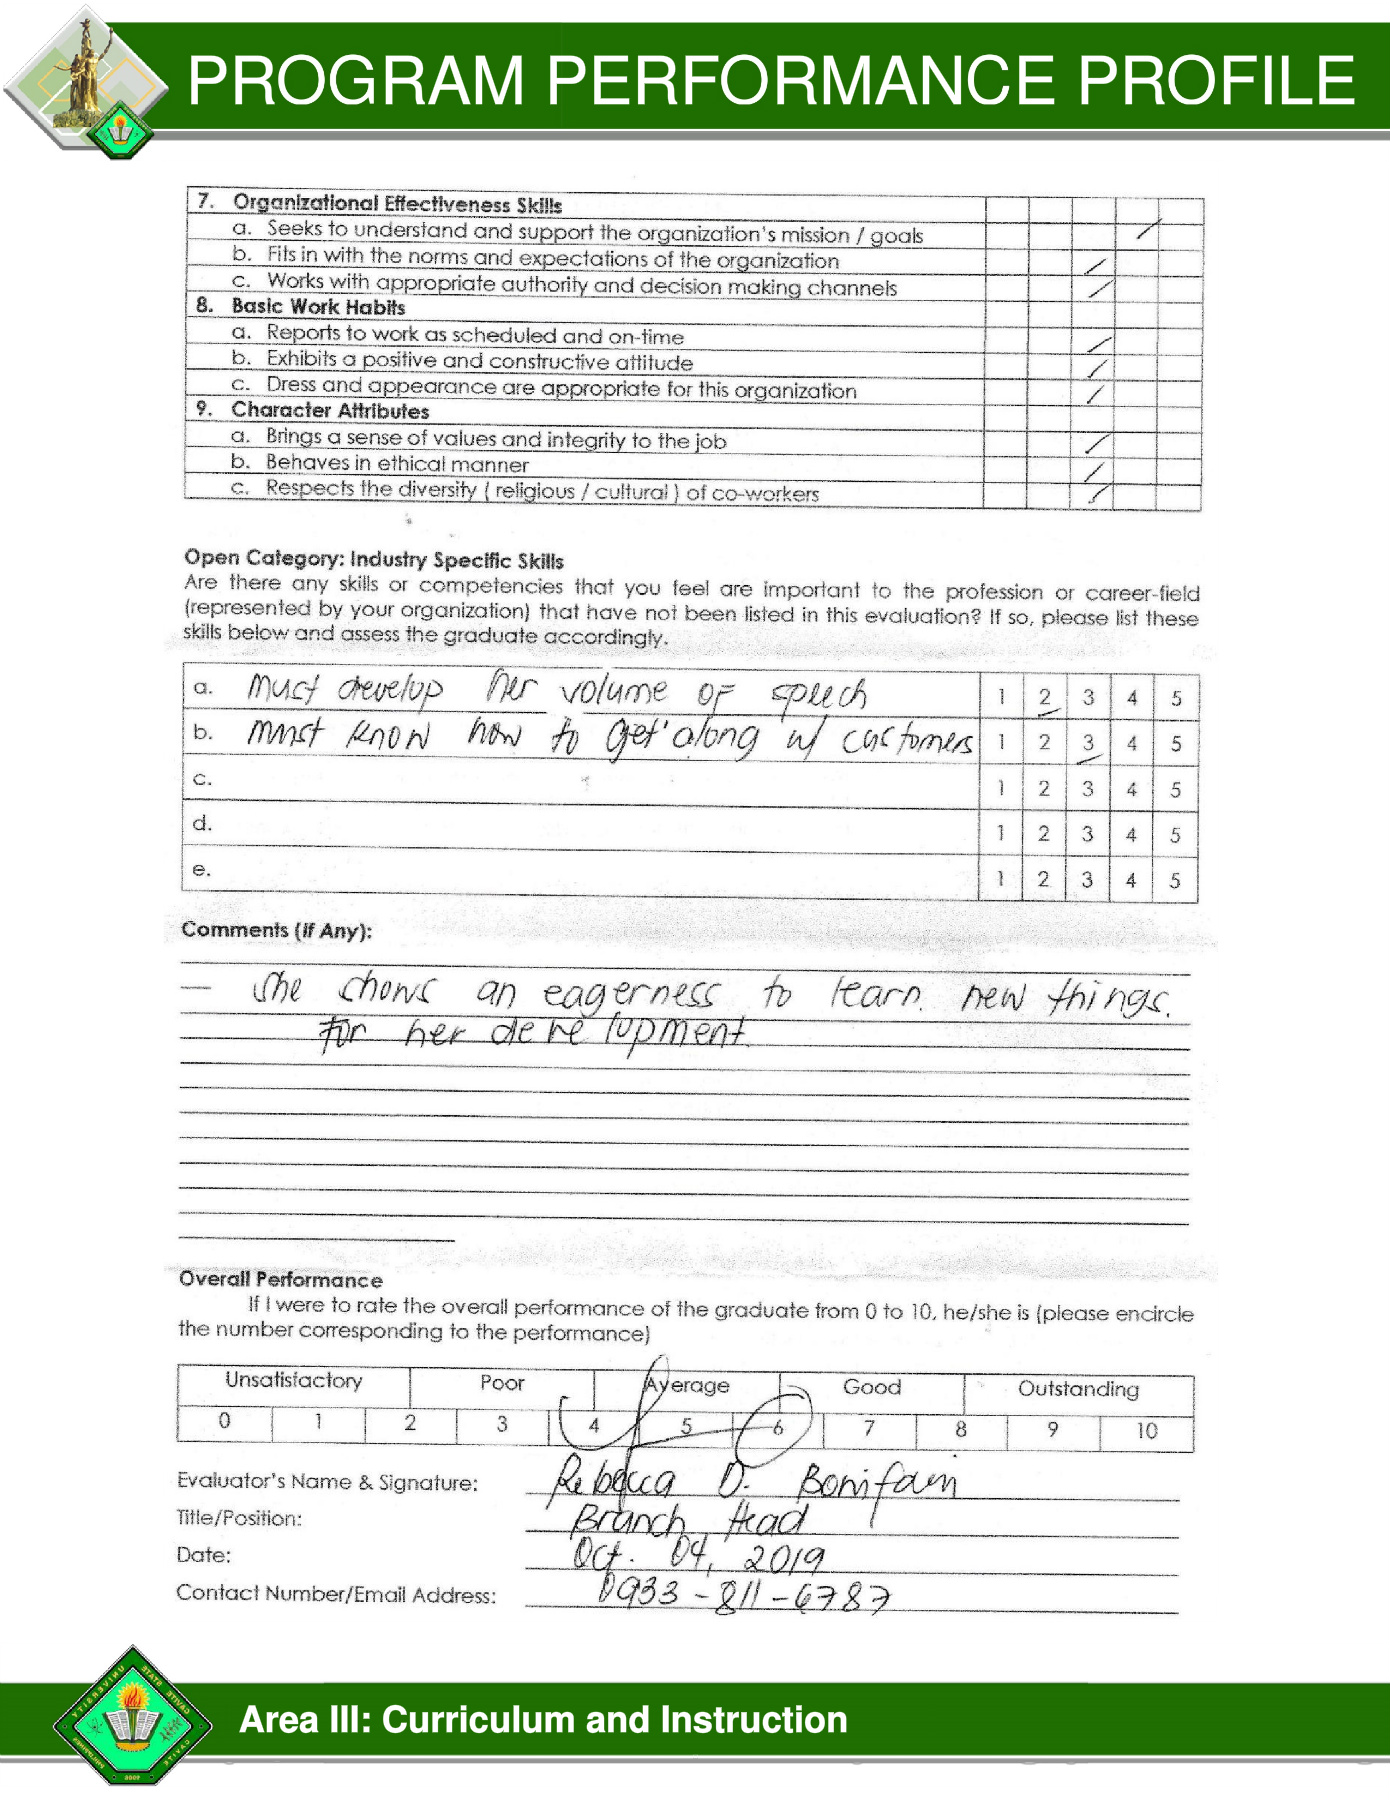 PROGRAM PERFORMANCE PROFILE
7. Organizational Effectiveness Skills
a. Seeks to understand and support the organization's mission / goals
b. Fits in with the norms and expectations of the organization
c. Works with appropriate authority and decision making channels
8. Basic Work Habits
a. Reports to work as scheduled and on-time
b. Exhibits a positive and constructive attitude
c. Dress and appearance are appropriate for this organization
9. Character Attributes
a. Brings a sense of values and integrity to the job
b. Behaves in ethical manner
c. Respects the diversity ( religious / cultural ) of co-workers
Open Category: Industry Specific Skills
Are there any skills or competencies that you feel are important to the profession or career-field
(represented by your organization) that have not been listed in this evaluation? If so, please list these
skills below and assess the graduate accordingly.
a. must develop her volume of speech 1 2 3 4 5
b. must know how to get along w/ customers 1 2 3 4 5
c. 1 2 3 4 5
d. 1 2 3 4 5
e. 1 2 3 4 5
Comments (If Any):
— she shows an eagerness to learn new things.
for her development
Overall Performance
If I were to rate the overall performance of the graduate from 0 to 10, he/she is (please encircle
the number corresponding to the performance)
Unsatisfactory Poor Average Good Outstanding
0 1 2 3 4 5 6 7 8 9 10
Evaluator's Name & Signature: Rebecca D.
Title/Position: Branch Head
Date: Oct. 04, 2019
Contact Number/Email Address: 0933-811-6787
Area III: Curriculum and Instruction